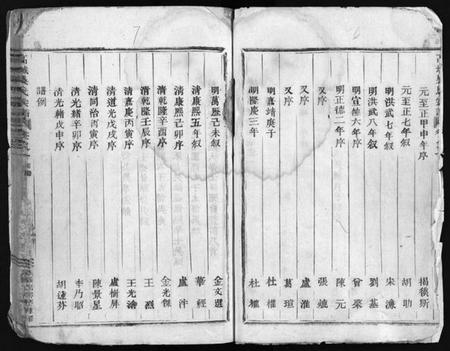 元至正甲申年序 揭傒斯
元至正七年叙 胡助
明洪武七年叙 宋濂
明洪武八年叙 劉基
明宣德六年序 曾棨
明正德二年序 陳元
又序 張
又序 盧濰
又序 葛瑄
明嘉靖庚子 杜㰌
明隆慶三年 杜㰌
明萬厯己未叙 金文選
清康熙五年叙 華經
清康熙己卯序 盧泮
清乾隆辛酉序 金光傑
清乾隆壬辰序 王烈
清嘉慶丙寅序 王光洽
清道光戊戌序 盧樹屏
清同治丙寅序 陳景星
清光緒辛卯序 李乃昭
清光緒戊申序 胡逢芬
譜例